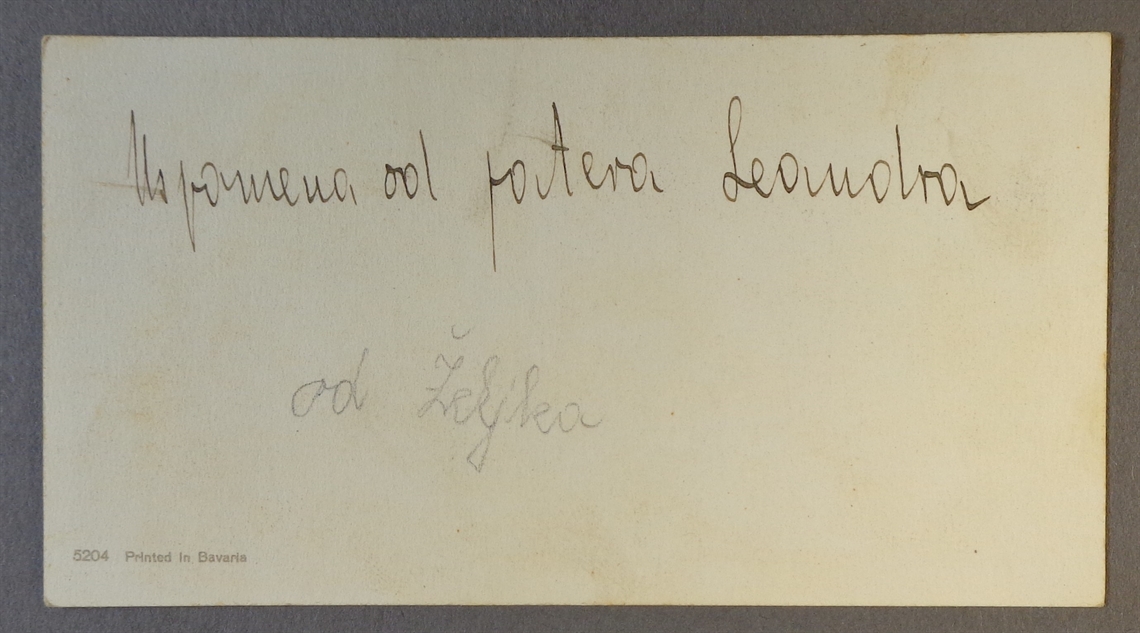 Uspomena od patera Leandra
od Željka
5204 Printed in Bavaria